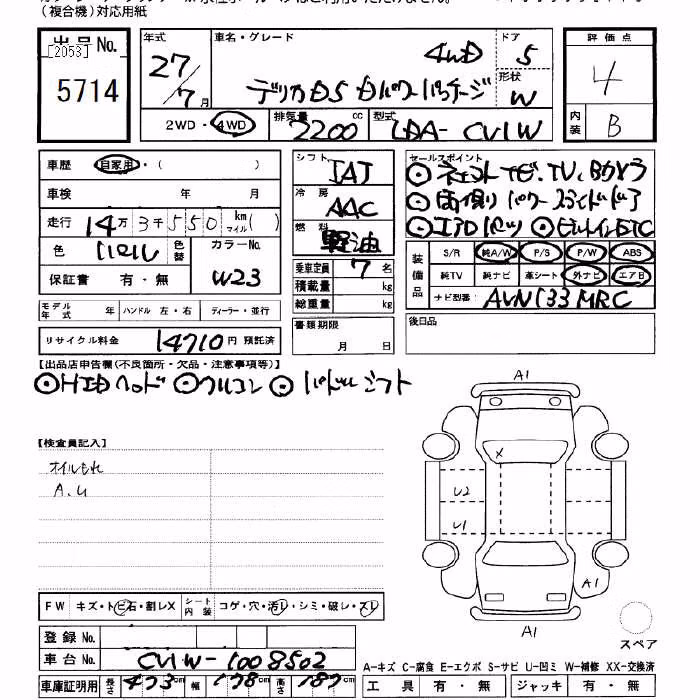 （複合機）対応用紙
出品No.
[2053]
5714
年式
27/7月
車名・グレード
4WD
デリカD5 Dパワーパッケージ
ドア
5
形状
W
評価点
4
内装
B
2WD・4WD
排気量
2200cc
型式
LDA-CV1W
車歴 自家用・（ ）
車検 年 月
走行 14万3千550 km マイル( )
色
色替
カラーNo.
W23
保証書 有・無
モデル年式 年 ハンドル 左・右 ディーラー・並行
リサイクル料金 14710円 預託済
シフト
IAT
冷房
AAC
燃料
軽油
乗車定員 7名
積載量 kg
総重量 kg
書類期限
月 日
セールスポイント
両側パワースライドドア
エアロパーツ ビルトインETC
装備品
S/R 純A/W P/S P/W ABS
純TV 純ナビ 革シート 外ナビ エアB
ナビ型番 AVN133MRC
後日品
【出品店申告欄(不良箇所・欠品・注意事項等)】
HIDヘッド ウルコン パドルシフト
【検査員記入】
オイルもれ
A.U
A1
X
U2
U1
A1
A1
スペア
FW キズ・トビ石・割レX シート内装 コゲ・穴・汚レ・シミ・破レ・スレ
登録No.
車台No. CV1W-1008502
車庫証明用 長さ 473cm 幅 178cm 高さ 187cm
A-キズ C-腐食 E-エクボ S-サビ U-凹ミ W-補修 XX-交換済
工具 有・無 ジャッキ 有・無